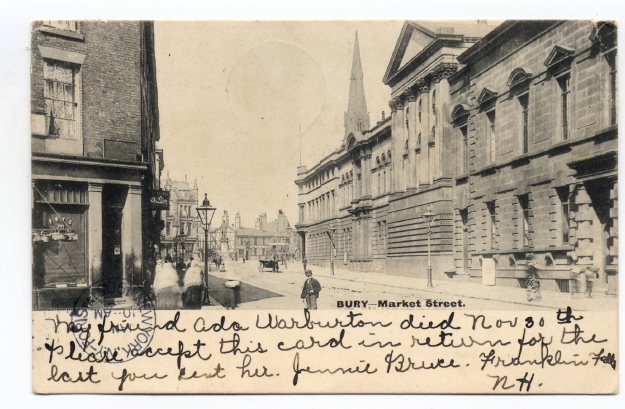 BURY.—Market Street.
My friend Ada Warburton died Nov 30th
Please accept this card in return for the
last you sent her. Jennie Bruce. Franklin Falls
N.H.